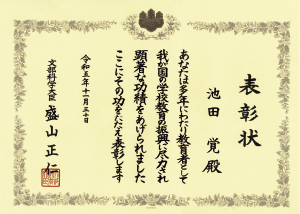 表彰状
池田 覚 殿
あなたは多年にわたり教育者として
我が国の学校教育の振興に尽力され
顕著な功績をあげられました
ここにその功をたたえ表彰します
令和五年十一月三十日
文部科学大臣 盛山正仁